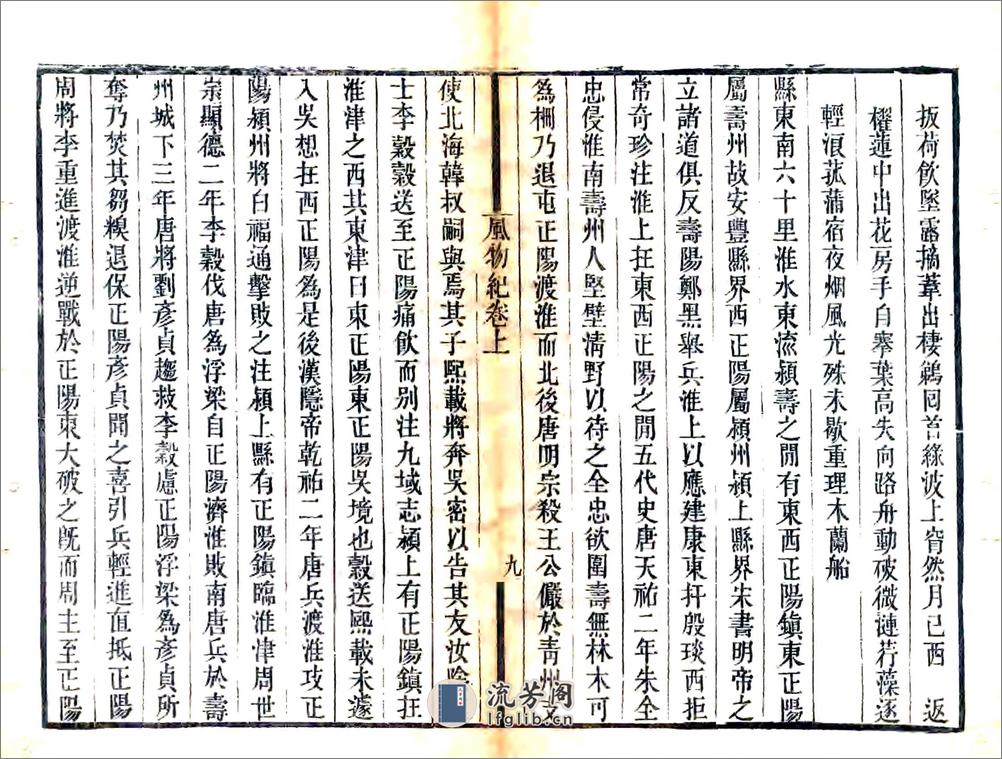 扳荷飲墜露摘葦出棲鵷囘首緣波上窅然月已西　返
櫂蓮中出花房手自搴葉高失向路舟動破微漣荇藻逐
輕浪菰蒲宿夜烟風光殊未歇重理木蘭船
縣東南六十里淮水東流潁壽之間有東西正陽鎮東正陽
屬壽州故安豐縣界西正陽屬潁州潁上縣界宋書明帝之
立諸道俱反壽陽鄭黑舉兵淮上以應建康東扞殷琰西拒
常奇珍注淮上在東西正陽之間五代史唐天祐二年朱全
忠侵淮南壽州人堅壁清野以待之全忠欲圍壽無林木可
為柵乃退屯正陽渡淮而北後唐明宗殺王公儼於青州又
風物紀卷上
九
使北海韓叔嗣與焉其子熙載將奔吳密以告其友汝陰
士李穀穀送至正陽痛飲而別注九域志潁上有正陽鎮在
淮津之西其東津曰東正陽東正陽吳境也穀送熙載未遽
入吳想在西正陽為是後漢隱帝乾祐二年唐兵渡淮攻正
陽潁州將白福通擊敗之注潁上縣有正陽鎮臨淮津周世
宗顯德二年李穀伐唐為浮梁自正陽濟淮敗南唐兵於壽
州城下三年唐將劉彥貞趨救李穀慮正陽浮梁為彥貞所
奪乃焚其芻糗退保正陽彥貞聞之喜引兵輕進直抵正陽
周將李重進渡淮逆戰於正陽東大破之既而周主至正陽
流芳阁
lfglib.cn